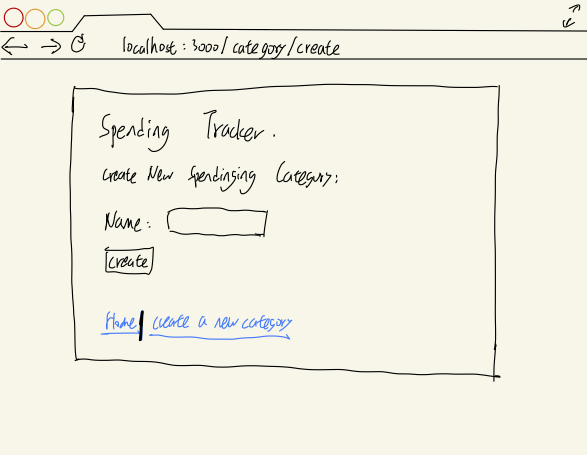 localhost : 3000/category/create
Spending Tracker.
Create New Spendinging Category:
Name:
Create
Home | create a new category